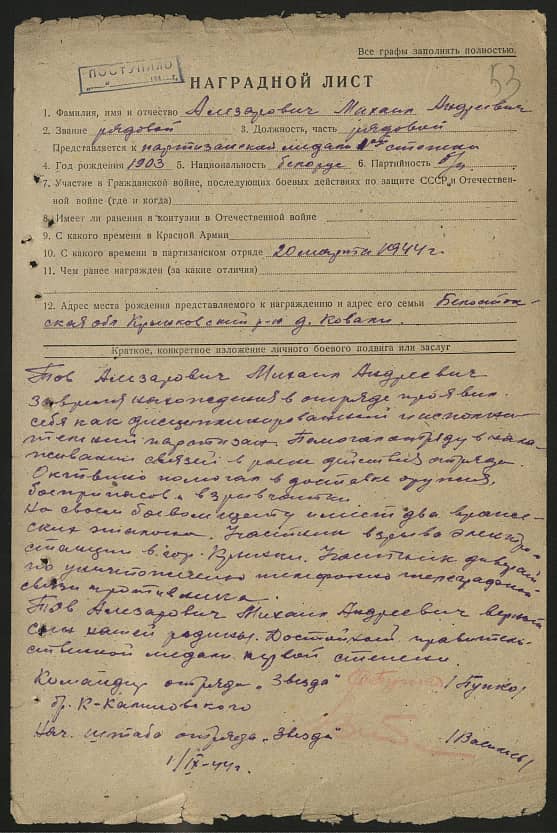 Все графы заполнять полностью.
ПОСТУПИЛО
53
НАГРАДНОЙ ЛИСТ
1. Фамилия, имя и отчество Алезарович Михаил Андреевич
2. Звание рядовой 3. Должность, часть рядовой
Представляется к партизанской медали 1ой степени
4. Год рождения 1903 5. Национальность белорус 6. Партийность б/п
7. Участие в Гражданской войне, последующих боевых действиях по защите СССР и Отечествен-
ной войне (где и когда)
8. Имеет ли ранения и контузии в Отечественной войне
9. С какого времени в Красной Армии
10. С какого времени в партизанском отряде 20 марта 1944 г.
11. Чем ранее награжден (за какие отличия)
12. Адрес места рождения представляемого к награждению и адрес его семьи Белосток-
ская обл Крынковский р-н д. Ковали.
Краткое, конкретное изложение личного боевого подвига или заслуг
Тов Алезарович Михаил Андреевич
За время нахождения в отряде проявил
себя как дисциплинированный и исполни-
тельный партизан. Помогал отряду в нала-
живании связей в районе действия отряда.
Активно помогал в доставке оружия,
боеприпасов и взрывчатки.
На своем боевом счету имеет два вражес-
ких эшелона. Участник взрыва электро-
станции в гор. Крынки. Участник диверсий
по уничтожению телефонно телеграфной
связи противника.
Тов Алезарович Михаил Андреевич верный
сын нашей родины. Достойный правитель-
ственной медали первой степени.
Командир отряда „Звезда" /Пупко/
бр. К-Калиновского
Нач. штаба отряда „Звезда"
1/IX-44г.